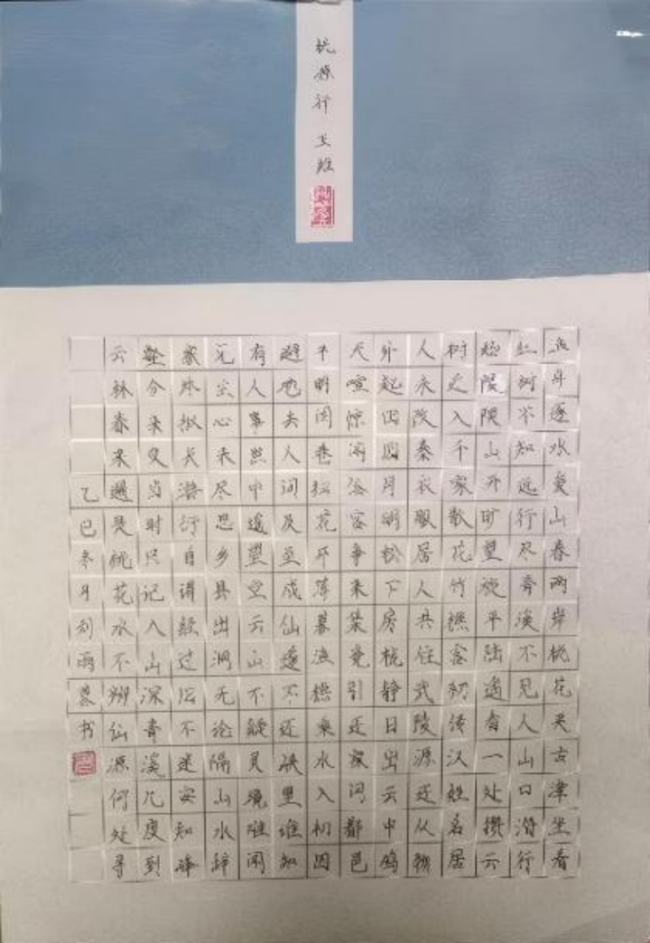 桃源行 王维
渔舟逐水爱山春两岸桃花夹古津坐看
红树不知远行尽青溪不见人山口潜行
始隈隩山开旷望旋平陆遥看一处攒云
树近入千家散花竹樵客初传汉姓名居
人未改秦衣服居人共住武陵源还从物
外起田园月明松下房栊静日出云中鸡
犬喧惊闻俗客争来集竞引还家问都邑
平明闾巷扫花开薄暮渔樵乘水入初因
避地去人间及至成仙遂不还峡里谁知
有人事世中遥望空云山不疑灵境难闻
见尘心未尽思乡县出洞无论隔山水辞
家终拟长游衍自谓经过旧不迷安知峰
壑今来变当时只记入山深青溪几度到
云林春来遍是桃花水不辨仙源何处寻
乙巳冬月刘雨书